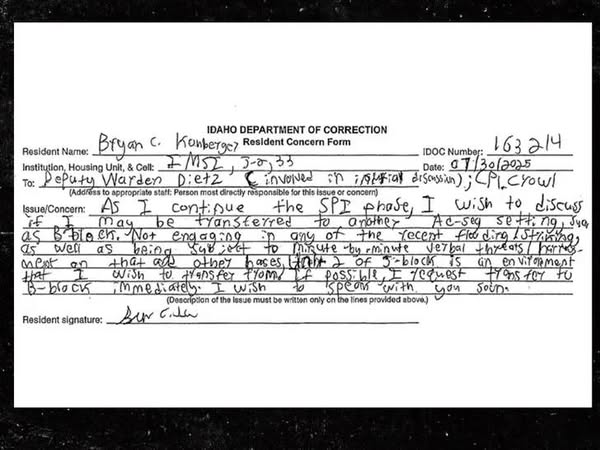 IDAHO DEPARTMENT OF CORRECTION
Resident Concern Form
Resident Name: Bryan C. Kohberger IDOC Number: 163214
Institution, Housing Unit, & Cell: IMSI, J-2, 33 Date: 07/30/2025
To: Deputy Warden Dietz (involved in initial discussion); CPL Crowl
(Address to appropriate staff: Person most directly responsible for this issue or concern)
Issue/Concern: As I continue the SPI phase, I wish to discuss
if I may be transferred to another Ad-seg setting, such
as B-block. Not engaging in any of the recent flooding/striking,
as well as being subject to minute-by-minute verbal threats/harrass-
ment on that and other bases, Unit 2 of J-block is an environment
that I wish to transfer from. If possible, I request transfer to
B-block immediately. I wish to speak with you soon.
(Description of the issue must be written only on the lines provided above.)
Resident signature: